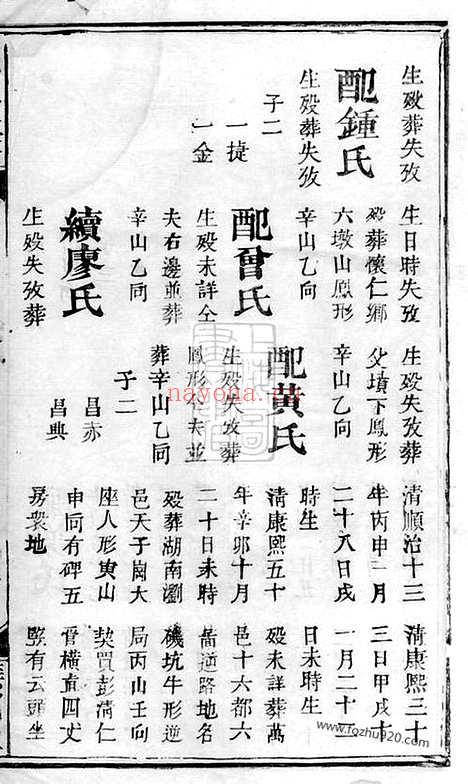 生歿葬失攷
配鍾氏
生歿葬失攷
子二
一捷
一金
生日時失攷
歿葬懷仁鄉
六墩山鳳形
辛山乙向
配曾氏
生歿未詳仝
夫右邊並葬
辛山乙向
續廖氏
生歿失攷葬
生歿失攷葬
父墳下鳳形
辛山乙向
配黃氏
生歿失攷葬
鳳形公夫並
葬辛山乙向
子二
昌赤
昌典
清順治十三
年丙申二月
二十八日戌
時生
清康熙五十
年辛卯十月
二十日未時
歿葬湖南瀏
邑天子崗大
座人形寅山
申向有碑五
房衆地
清康熙三十
三日甲戌十
一月二十二
日未時生
歿未詳葬萬
邑十六都六
逆路地名
磯坑牛形逆
局丙山壬向
契買彭清仁
橫直四丈
竪有云頭坐
nayona.cn
www.fozhu920.com